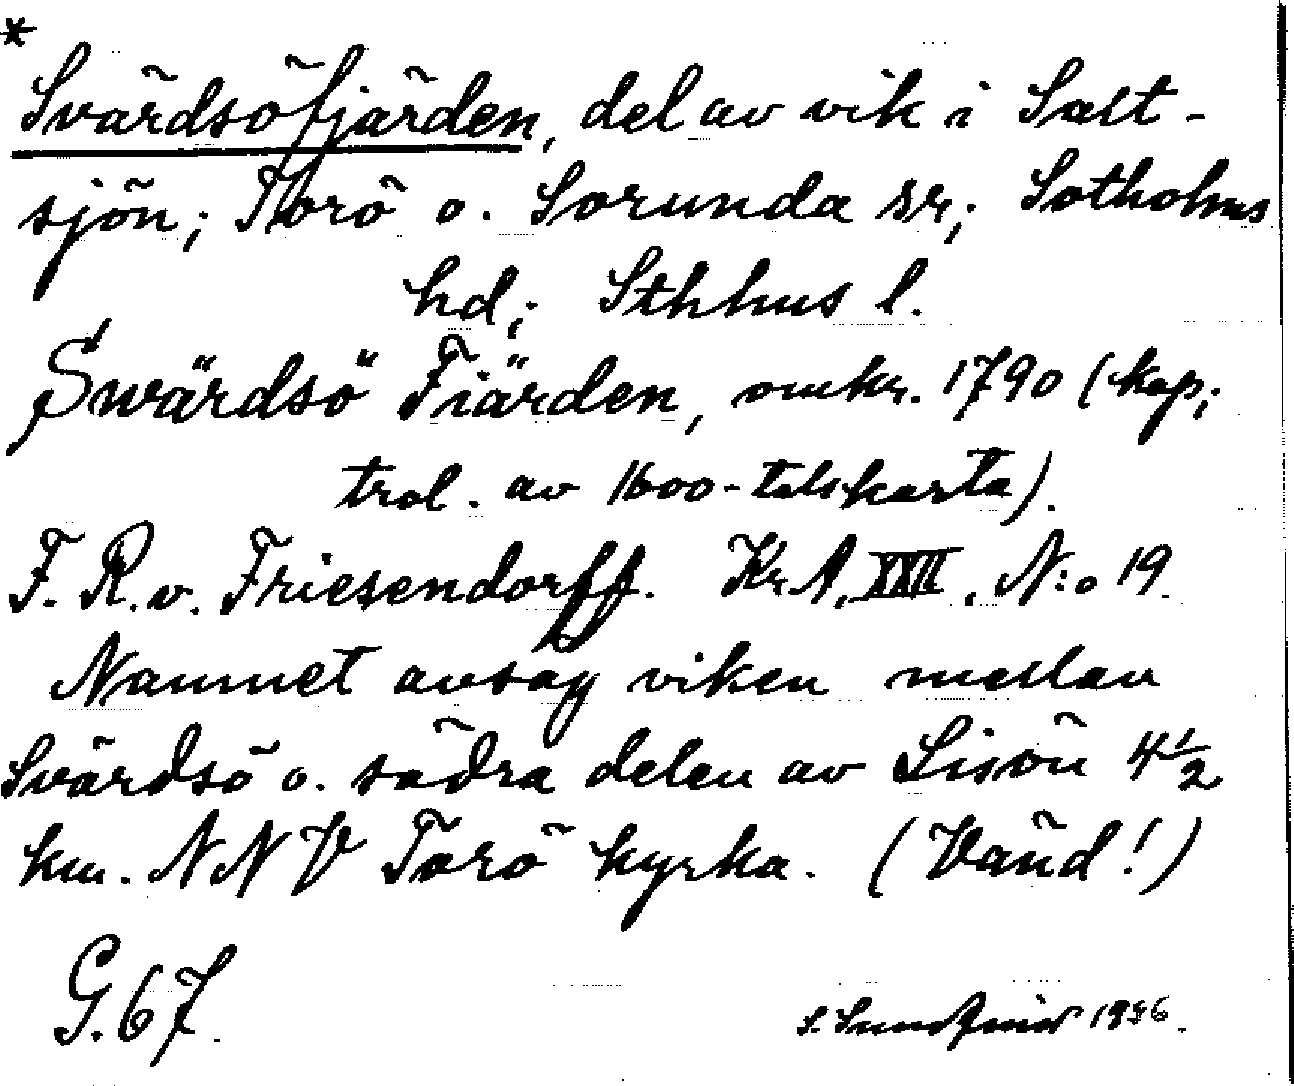 *
Svärdsöfjärden, del av vik i Salt-
sjön; Torö o. Sorunda sr; Sotholms
hd; Sthlms l.
Swärdsö Fiärden, omkr. 1790 (kop;
trol. av 1600-talskarta).
F. R. v. Friesendorff. Kr.A, XXII, N:o 19
Namnet avsåg viken mellan
Svärdsö o. södra delen av Lisön 4 1/2
km. NNV Torö kyrka. (Vänd!)
G. 67.
S. 1936.